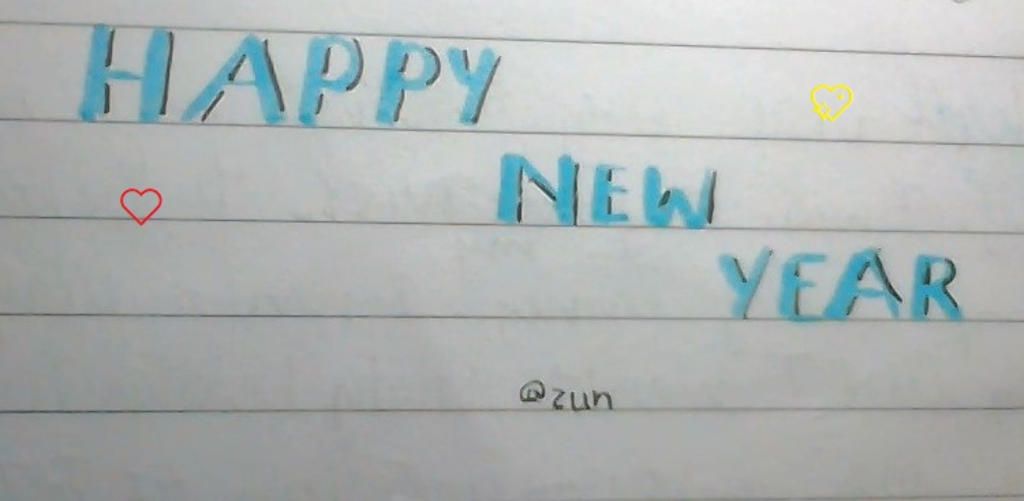 HAPPY
NEW
YEAR
@zun